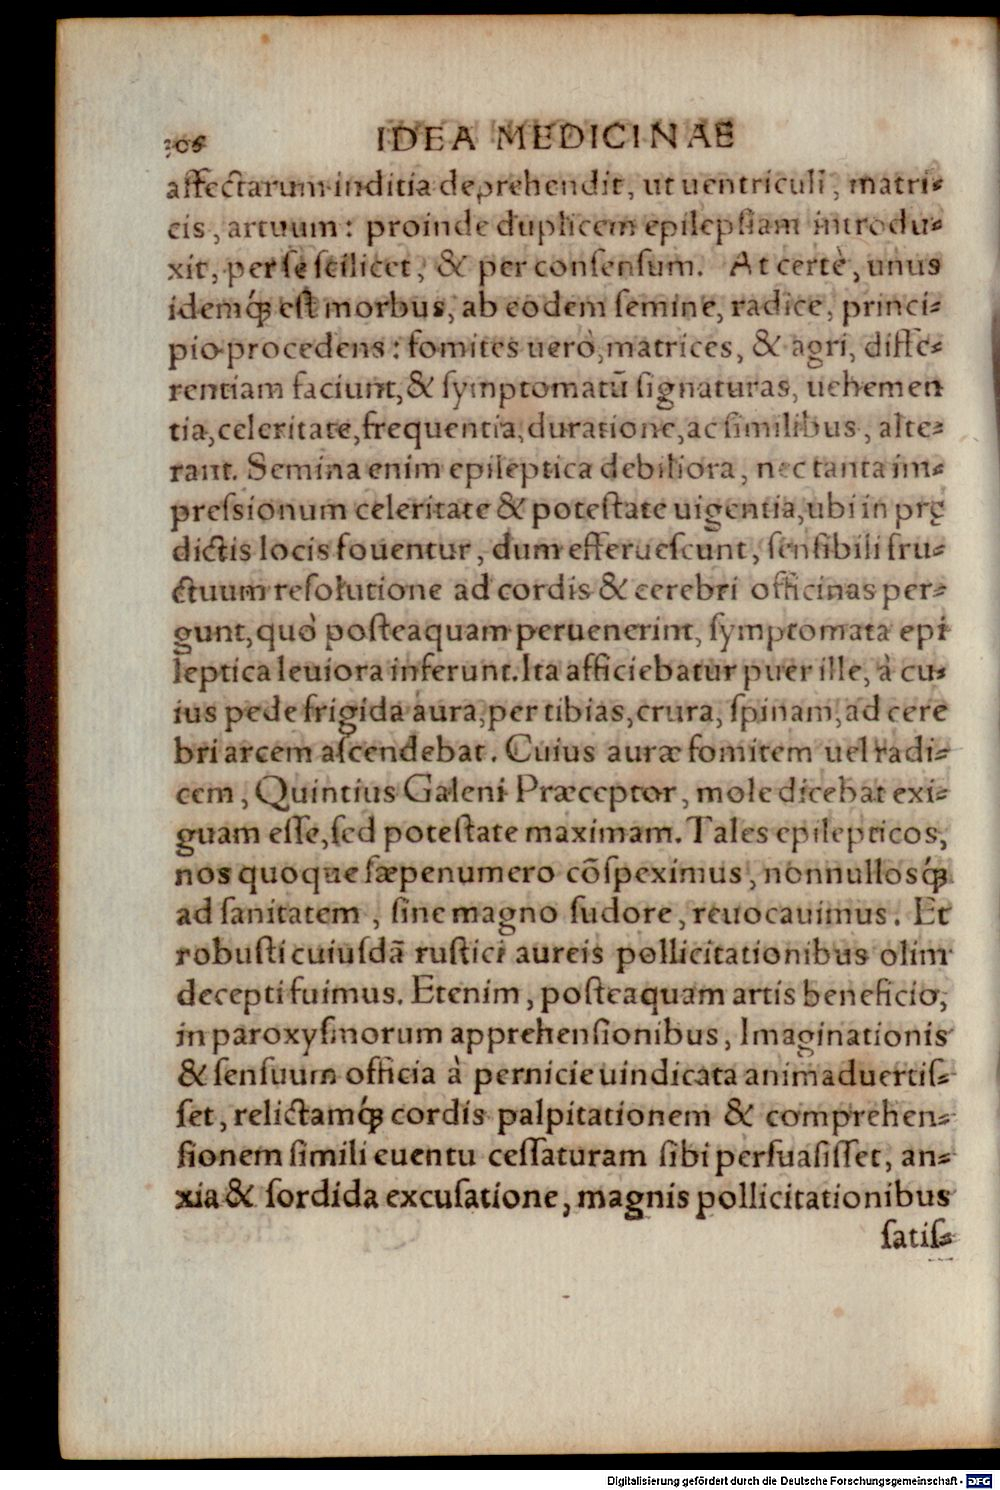 306 IDEA MEDICINAE
affectarum inditia deprehendit, ut uentriculi, matri-
cis, artuum: proinde duplicem epilepsiam introdu-
xit, per se scilicet, & per consensum. At certè, unus
idemq́; est morbus, ab eodem semine, radice, princi-
pio procedens: fomites uerò, matrices, & agri, diffe-
rentiam faciunt, & symptomatũ signaturas, uehemen
tia, celeritate, frequentia, duratione, ac similibus, alte-
rant. Semina enim epileptica debiliora, nec tanta im-
pressionum celeritate & potestate uigentia, ubi in prę
dictis locis fouentur, dum efferuescunt, sensibili fru-
ctuum resolutione ad cordis & cerebri officinas per-
gunt, quò posteaquam peruenerint, symptomata epi
leptica leuiora inferunt. Ita afficiebatur puer ille, à cu-
ius pede frigida aura, per tibias, crura, spinam, ad cere
bri arcem ascendebat. Cuius auræ fomitem uel radi-
cem, Quintius Galeni Præceptor, mole dicebat exi-
guam esse, sed potestate maximam. Tales epilepticos,
nos quoque sæpenumero cõspeximus, nonnullosq́;
ad sanitatem, sine magno sudore, reuocauimus. Et
robusti cuiusdã rustici aureis pollicitationibus olim
decepti fuimus. Etenim, posteaquam artis beneficio,
in paroxysmorum apprehensionibus, Imaginationis
& sensuum officia à pernicie uindicata animaduertis-
set, relictamq́; cordis palpitationem & comprehen-
sionem simili euentu cessaturam sibi persuasisset, an-
xia & sordida excusatione, magnis pollicitationibus
satis-
Digitalisierung gefördert durch die Deutsche Forschungsgemeinschaft - DFG